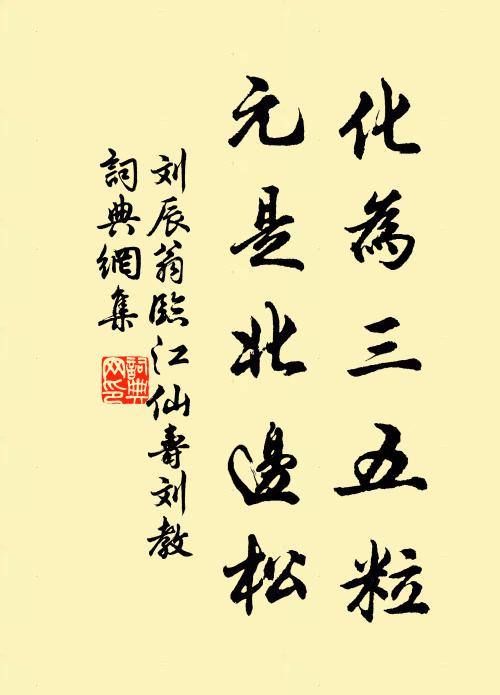 化為三五粒
元是北邊松
刘辰翁臨江仙壽刘教
詞典網集
詞典网印